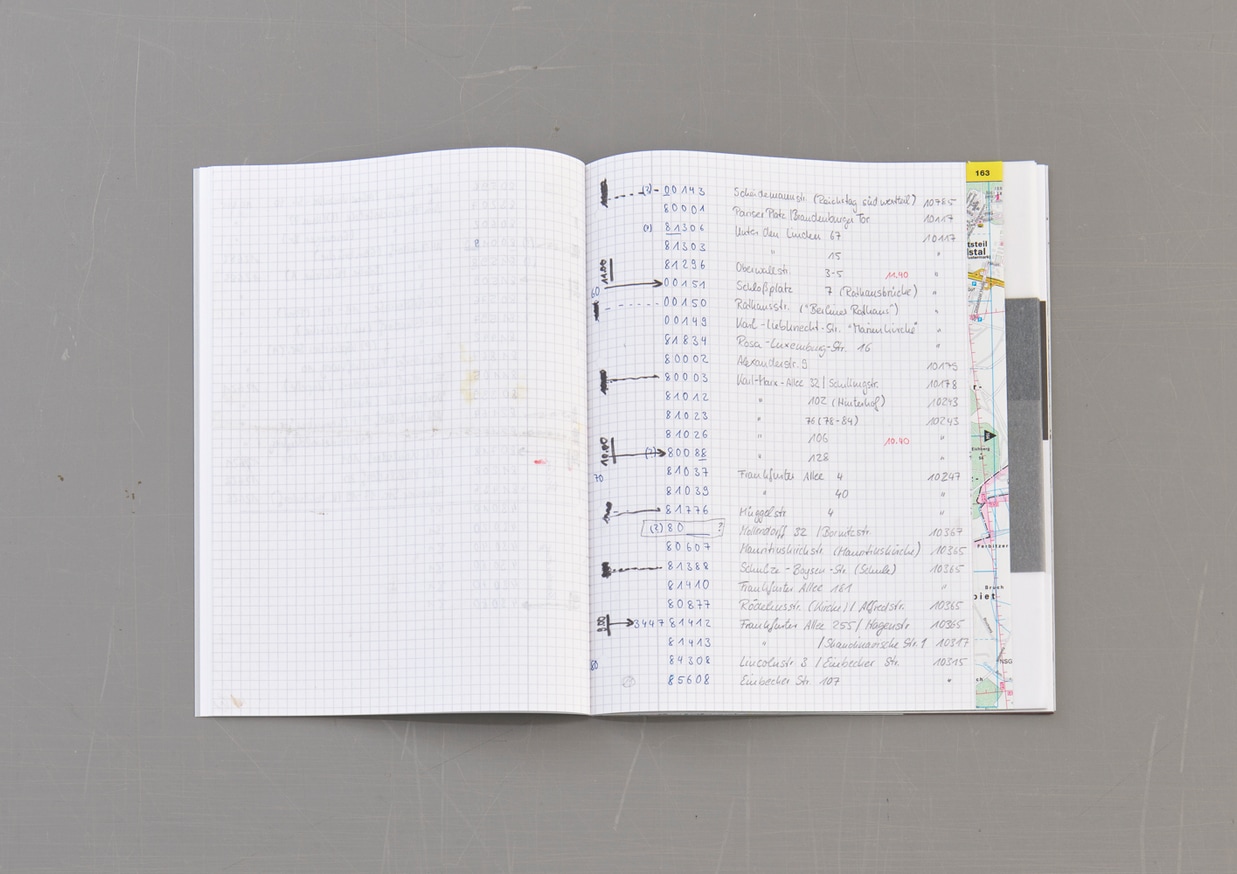 163
(2) 00143 Scheidemannstr. (Reichstag südwestteil) 10785
80001 Pariser Platz/Brandenburger Tor 10117
(1) 81306 Unter den Linden 67 10117
81303 " 15 "
11.00 81296 Oberwallstr. 3-5 11.40 "
60 00151 Schloßplatz 7 (Rathausbrücke) "
00150 Rathausstr. ("Berliner Rathaus") "
00149 Karl-Liebknecht-Str. "Marienkirche" "
81834 Rosa-Luxemburg-Str. 16 "
80002 Alexanderstr. 9 10179
80003 Karl-Marx-Allee 32/Schillingstr. 10178
81012 " 102 (Hinterhof) 10243
81023 " 76 (78-84) 10243
81026 " 106 10.40 "
10.00 (2) 80088 " 128 "
70 81037 Frankfurter Allee 4 10247
81039 " 40 "
81776 Müggelstr. 4 "
(2) 80 ? Möllendorff 32 /Bornitzstr. 10367
80607 Mauritiuskirchstr. (Mauritiuskirche) 10365
81388 Schulze-Boysen-Str. (Schule) 10365
81410 Frankfurter Allee 161 "
80877 Rödeliusstr. (Kirche) / Alfredstr. 10365
9.00 3447 81412 Frankfurter Allee 255 / Hagenstr. 10365
81413 " /Skandinavische Str. 1 10317
80 84308 Lincolnstr 3 / Einbecker Str. 10315
85608 Einbecker Str 107 "
tsteil
stal
Bruch
biet-
NSG